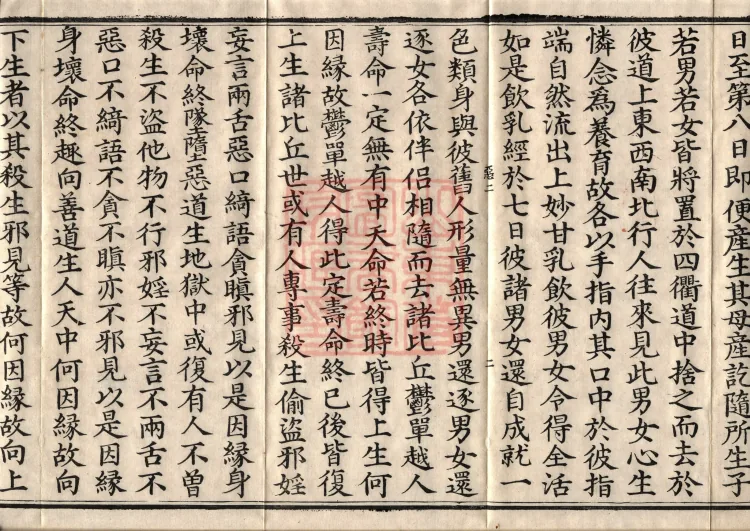 日至第八日即便產生其母產訖隨所生子
若男若女皆將置於四衢道中捨之而去於
彼道上東西南北行人往來見此男女心生
憐念爲養育故各以手指內其口中於彼指
端自然流出上妙甘乳飲彼男女令得全活
如是飲乳經於七日彼諸男女還自成就一
惡二 二
色類身與彼舊人形量無異男還逐男女還
逐女各依伴侶相隨而去諸比丘鬱單越人
壽命一定無有中夭命若終時皆得上生何
因緣故鬱單越人得此定壽命終已後皆復
上生諸比丘世或有人專事殺生偷盜邪婬
妄言兩舌惡口綺語貪瞋邪見以是因緣身
壞命終墜墮惡道生地獄中或復有人不曾
殺生不盜他物不行邪婬不妄言不兩舌不
惡口不綺語不貪不瞋亦不邪見以是因緣
身壞命終趣向善道生人天中何因緣故向
下生者以其殺生邪見等故何因緣故向上